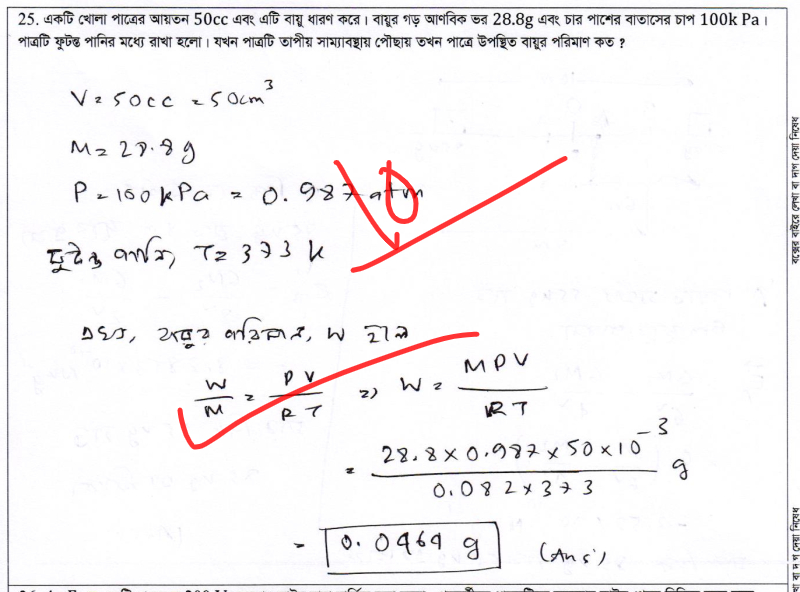 25. একটি খোলা পাত্রের আয়তন 50cc এবং এটি বায়ু ধারণ করে। বায়ুর গড় আণবিক ভর 28.8g এবং চার পাশের বাতাসের চাপ 100k Pa।
পাত্রটি ফুটন্ত পানির মধ্যে রাখা হলো। যখন পাত্রটি তাপীয় সাম্যাবস্থায় পৌছায় তখন পাত্রে উপস্থিত বায়ুর পরিমাণ কত ?
V = 50cc = 50cm³
M = 28.8g
P = 100 kPa = 0.987 atm
ফুটন্ত পানি, T = 373 K
এখন, বায়ুর পরিমান, W হলে
W/M = PV/RT => W = MPV/RT
= 28.8×0.987×50×10⁻³/0.082×373 g
= 0.0464 g (Ans:)
বক্সের বাইরে লেখা বা দাগ দেয়া নিষেধ